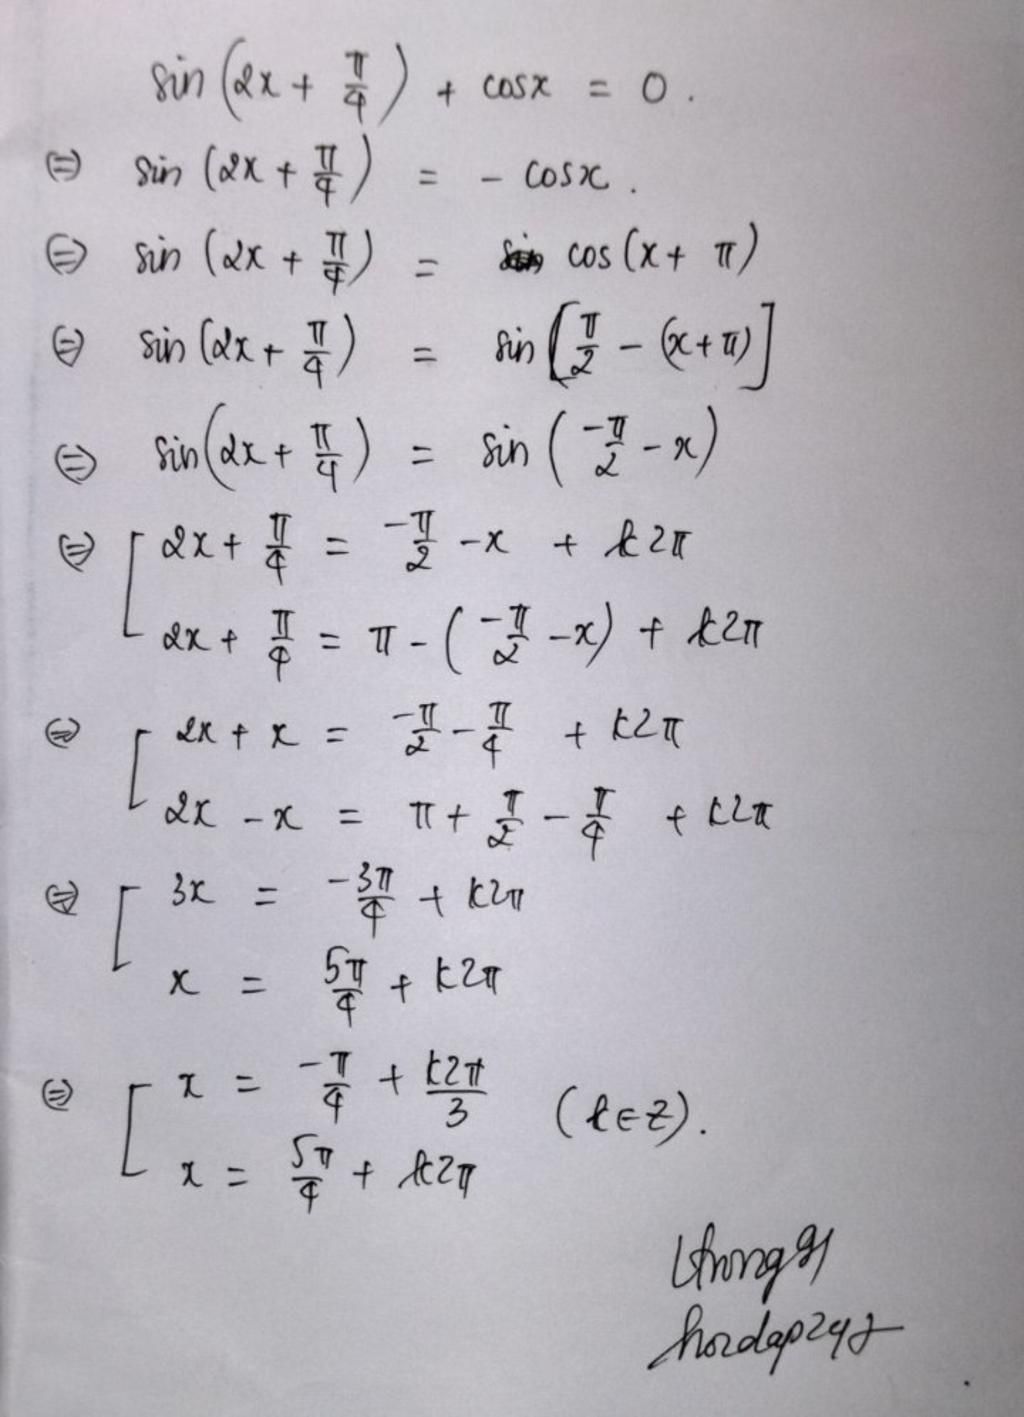 sin (2x + π/4) + cosx = 0.
⇔ sin (2x + π/4) = - cosx.
⇔ sin (2x + π/4) = cos (x + π)
⇔ sin (2x + π/4) = sin [π/2 - (x + π)]
⇔ sin (2x + π/4) = sin (-π/2 - x)
⇔ [ 2x + π/4 = -π/2 - x + k2π
2x + π/4 = π - (-π/2 - x) + k2π
⇔ [ 2x + x = -π/2 - π/4 + k2π
2x - x = π + π/2 - π/4 + k2π
⇔ [ 3x = -3π/4 + k2π
x = 5π/4 + k2π
⇔ [ x = -π/4 + k2π/3 (k ∈ Z).
x = 5π/4 + k2π